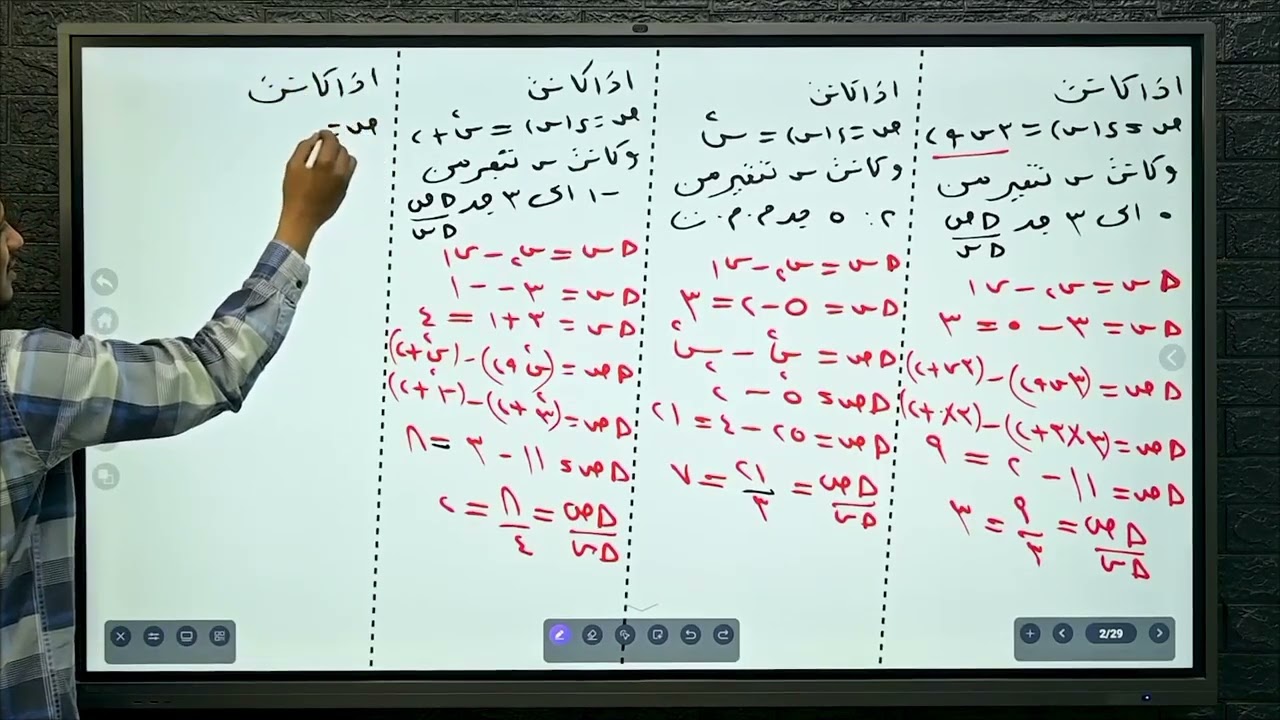 اذا كانت
ص = د(س) = ٣س + ٢
وكانت س تتغير من
٠ الى ٣ جد Δص/Δس
Δس = س٢ - س١
Δس = ٣ - ٠ = ٣
Δص = (٣س + ٢) - (٣س + ٢)
Δص = (٣×٣ + ٢) - (٣×٠ + ٢)
Δص = ١١ - ٢ = ٩
Δص/Δس = ٩/٣ = ٣
اذا كانت
ص = د(س) = س٢
وكانت س تتغير من
٢ : ٥ جد م . م . ت
Δس = س٢ - س١
Δس = ٥ - ٢ = ٣
Δص = س٢٢ - س٢١
Δص = ٥٢ - ٢٢
Δص = ٢٥ - ٤ = ٢١
Δص/Δس = ٢١/٣ = ٧
اذا كانت
ص = د(س) = س٢ + ٢
وكانت س تتغير من
-١ الى ٣ جد Δص/Δس
Δس = س٢ - س١
Δس = ٣ - - ١
Δس = ٣ + ١ = ٤
Δص = (س٢ + ٢) - (س٢ + ٢)
Δص = (٣٢ + ٢) - (-١٢ + ٢)
Δص = ١١ - ٣ = ٨
Δص/Δس = ٨/٤ = ٢
اذا كانت
ص =
2/29